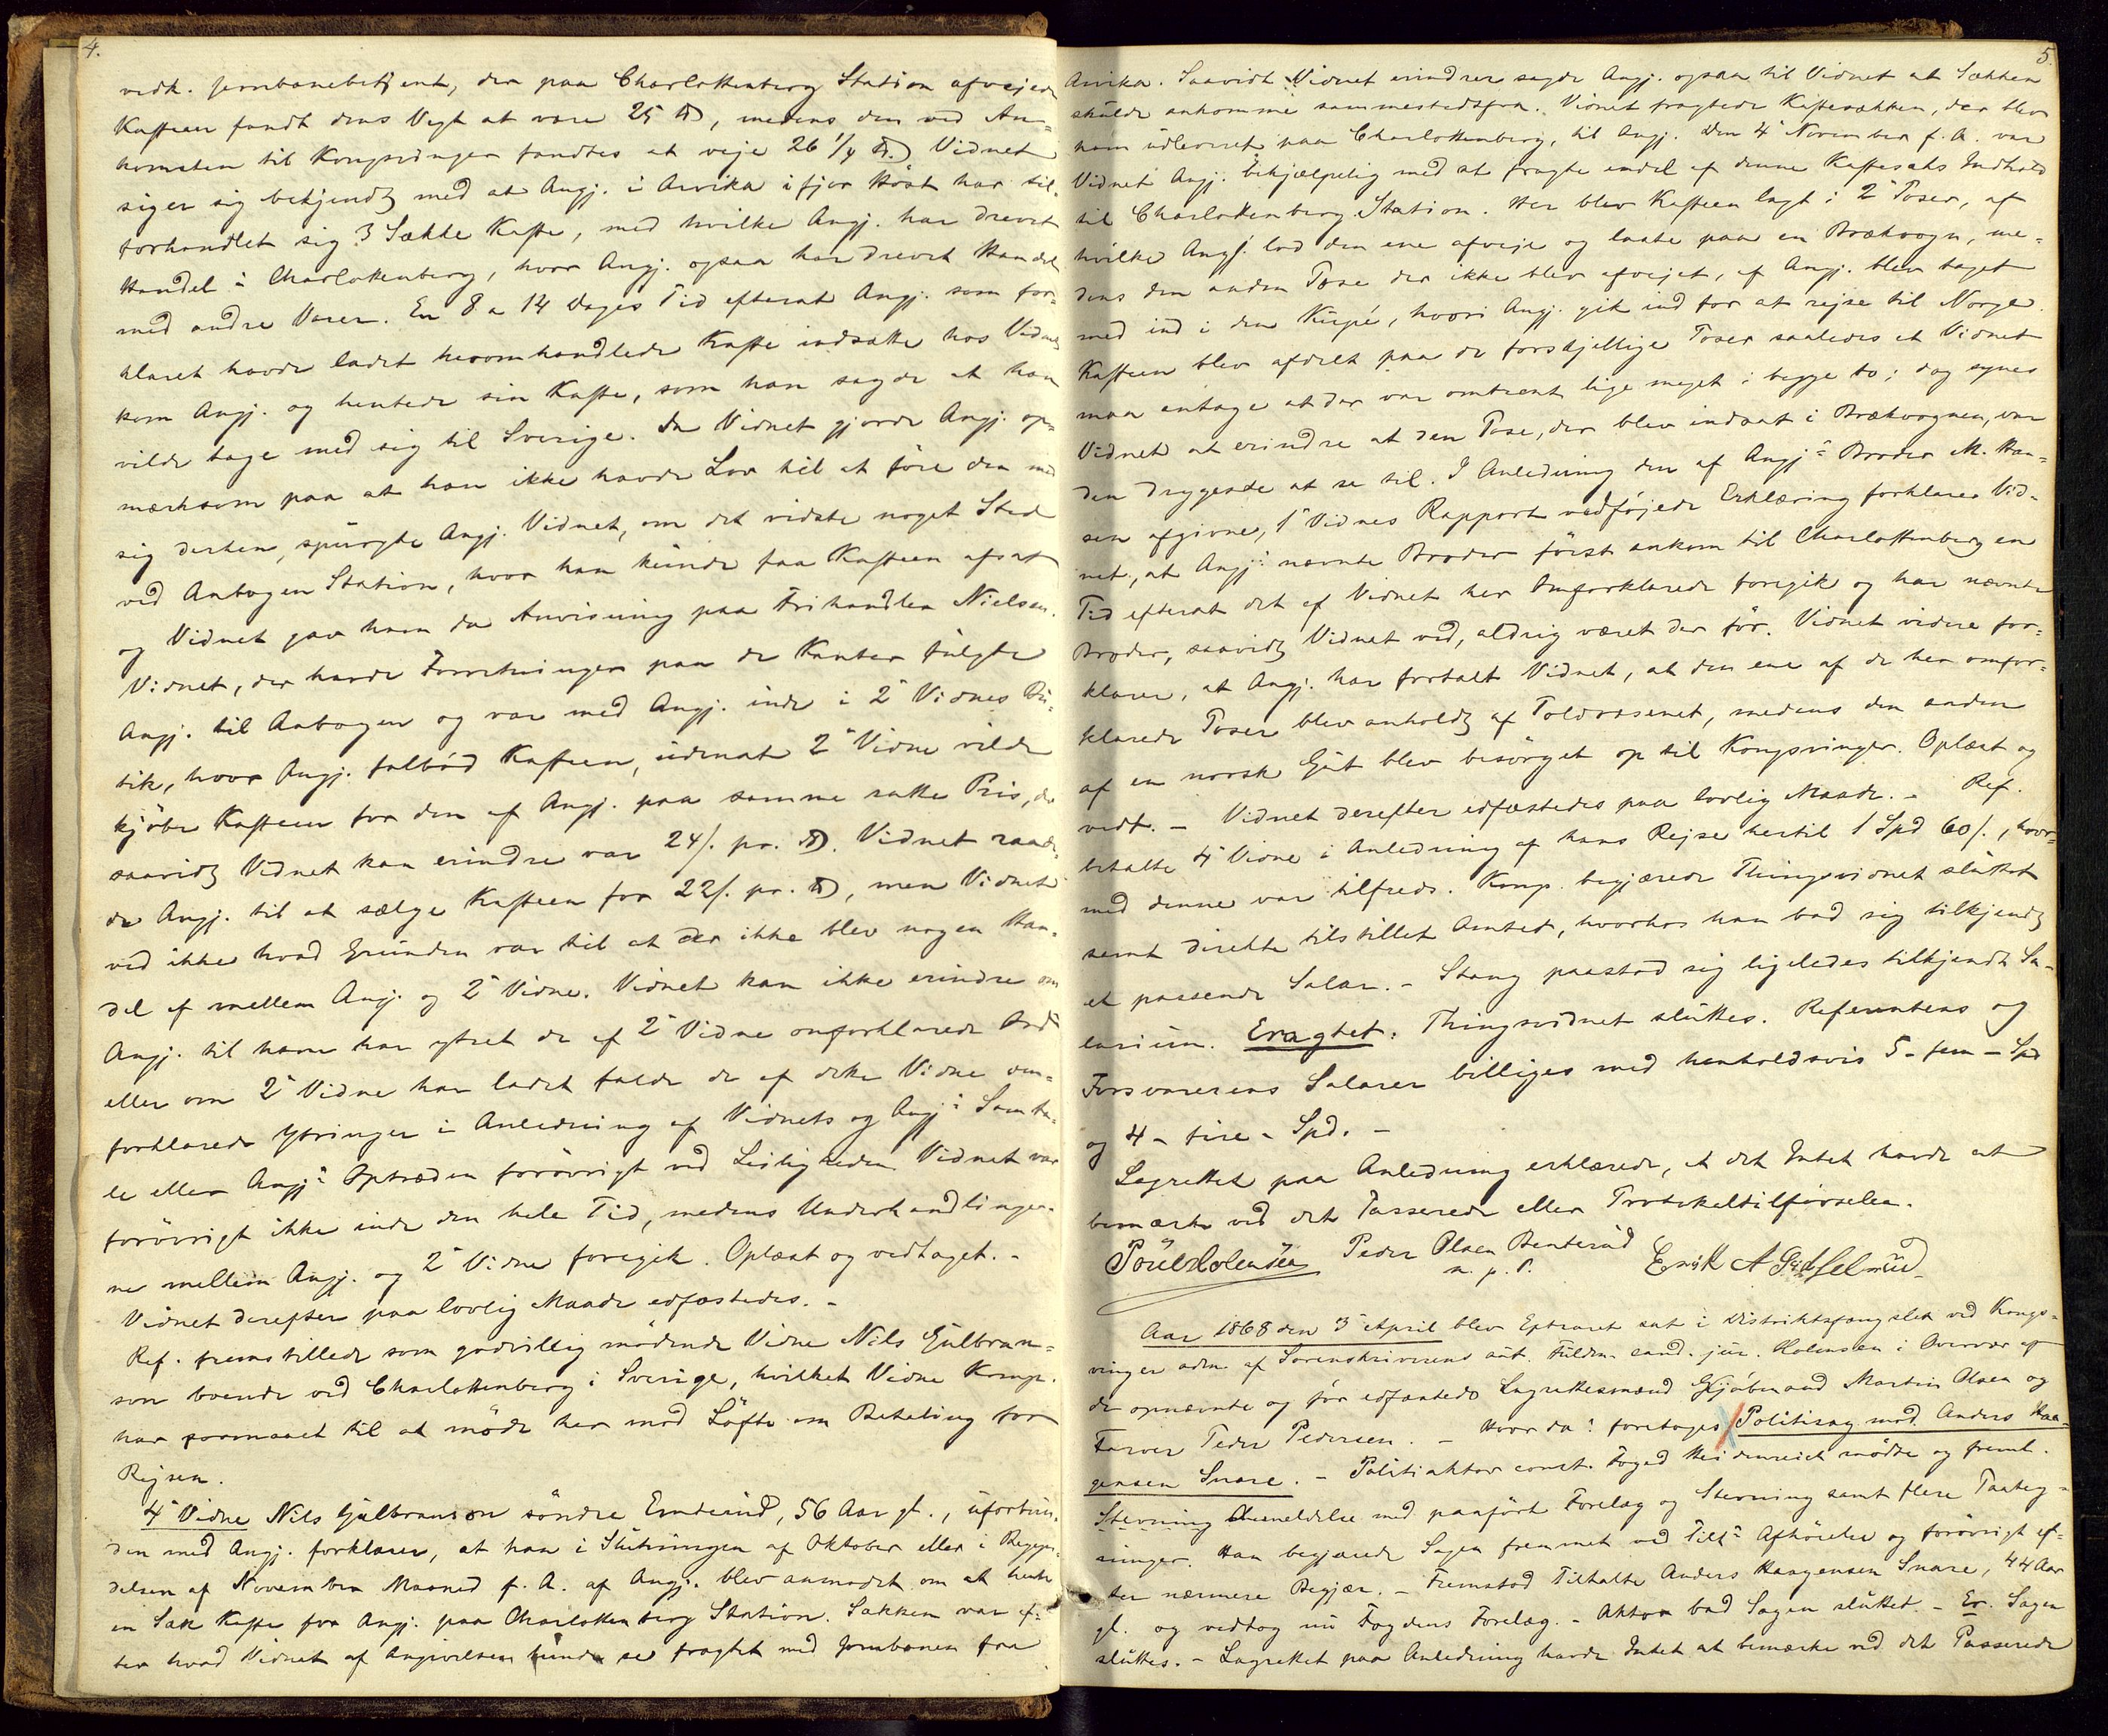 4.
vedk. Jernbanebetjent, der paa Charlottenberg Station afvejede
Kaffeen fandt dens Vegt at være 25 ℔, medens den ved An-
komsten til Kongsvinger fandtes at veje 26 1/4 ℔.) Vidnet
siger sig bekjendt med at Angj. i Arvika ifjor Höst har til-
forhandlet sig 3 Sække Kaffe, med hvilke Angj. har drevet
Handel i Charlottenberg, hvor Angj. ogsaa har drevet Handel
med andre Varer. En 8 a 14 Dages Tid efterat Angj. som for-
klaret havde ladet heromhandlede Kaffe indsætte hos Vidnet
kom Angj. og hentede sin Kaffe, som han sagde at han
vilde tage med sig til Sverige. Da Vidnet gjorde Angj. op-
mærksom paa at han ikke havde Lov til at före den med
sig derhen, spurgte Angj. Vidnet, om det vidste noget Sted
ved Aabogen Station, hvor han kunde faa Kaffeen afsat
og Vidnet gav ham da Anvisning paa Frihandler Nielsen.
Vidnet, der havde Forretninger paa de Kanter fulgte
Angj. til Aabogen og var med Angj. inde i 2^t Vidnes Bu-
tik, hvor Angj. falböd Kaffeen, uden at 2^t Vidne vilde
kjöbe Kaffeen for den af Angj. paa samme satte Pris, der
saavidt Vidnet kan erindre var 24 /. pr. ℔. Vidnet raade-
de Angj. til at sælge Kaffeen for 22 /. pr. ℔, men Vidnet
ved ikke hvad Grunden var til at der ikke blev nogen Han-
del af mellem Angj. og 2^t Vidne. Vidnet kan ikke erindre om
Angj. til ham har ytret de af 2^t Vidne omforklarede Ord
eller om 2^t Vidne har ladet falde de af dette Vidne om-
forklarede Ytringer i Anledning af Vidnets og Angj^s Samta-
le eller Angj^s Optræden forövrigt ved Leiligheden. Vidnet var
forövrigt ikke inde den hele Tid, medens Underhandlinger-
ne mellem Angj. og 2^t Vidne foregik. Oplæst og vedtaget. -
Vidnet derefter paa lovlig Maade edfæstedes. -
Ref. fremstillede som godvillig mödende Vidne Nils Gulbran-
son boende ved Charlottenberg i Sverige, hvilket Vidne Komp.
har formaaet til at möde her mod Löfte om Betaling for
Rejsen.
4^t Vidne Nils Gulbranson söndre Emterud, 56 Aar gl., uforbun-
den med Angj. forklarer, at han i Slutningen af Oktober eller i Begyn-
delsen af November Maaned f. A. af Angj. blev anmodet om at hente
en Sæk Kaffe for Angj. paa Charlottenberg Station. Sækken var ef-
ter hvad Vidnet af Angivelsen kunde se fragtet med Jernbanen fra
5.
Arvika. Saavidt Vidnet erindrer sagde Angj. ogsaa til Vidnet at Sækken
skulde ankomme sammestedsfra. Vidnet fragtede Kaffesækken, der blev
ham udleveret paa Charlottenberg, til Angj. Den 4^e November f. A. var
Vidnet Angj. behjælpelig med at fragte endel af denne Kaffesæks Indhold
til Charlottenberg Station. Her blev Kaffeen lagt i 2^e Poser, af
hvilke Angj. lod den ene afveje og laste paa en Brækvogn, me-
dens den anden Pose der ikke blev afvejet, af Angj. blev taget
med ind i den Kupé, hvori Angj. gik ind for at rejse til Norge.
Kaffeen blev afdelt paa de forskjellige Poser saaledes at Vidnet
maa antage at der var omtrent lige meget i begge to; dog synes
Vidnet at erindre at den Pose, der blev indsat i Brækvognen, var
den drygeste at se til. I Anledning den af Angj^s Broder M. Han-
sen afgivne, 1^t Vidnes Rapport vedföjede Erklæring forklarer Vid-
net, at Angj^s nævnte Broder först ankom til Charlottenberg en
Tid efterat det af Vidnet her Omforklarede foregik og har nævnte
Broder, saavidt Vidnet ved, aldrig været der för. Vidnet videre for-
klarer, at Angj. har fortalt Vidnet, at den ene af de her omfor-
klarede Poser blev anholdt af Toldvæsenet, medens den anden
af en norsk Gut blev besörget op til Kongsvinger. Oplæst og
vedt. - Vidnet derefter edfæstedes paa lovlig Maade. - Ref.
betalte 4^t Vidne i Anledning af hans Rejse hertil 1 Spd 60 /., hvor-
med denne var tilfreds. Komp. begjærede Thingsvidnet sluttet
samt direkte tilstillet Amtet, hvorhos han bad sig tilkjendt
et passende Salar. - Stang paastod sig ligeledes tilkjendt Sa-
larium. Eragtet: Thingsvidnet sluttes. Referentens og
Forsvarerens Salarer billiges med henholdsvis 5 - fem - Spd
og 4 - fire - Spd. -
Lagrettet paa Anledning erklærede, at det Intet havde at
bemærke ved det Passerede eller Protokoltilförselen.
Poul Holensen Peder Olsen Benterud Erik A
m. p. P.
Aar 1868 den 3^e April blev Extraret sat i Distriktsfængslet ved Kongs-
vinger adm. af Sorenskriverens aut. Fuldm. cand. jur. Holensen i Overvær af
de opnævnte og för edfæstede Lagrettesmænd Gjöbmand Martin Olsen og
Farver Peder Pedersen. - Hvor da: foretoges Politisag mod Anders Haa-
gensen Snare. - Politiaktor const. Foged Heidenreich mödte og freml.
Stevning Anmeldelse med paafört Forelæg og Stevning samt flere Paateg-
ninger. Han begjærede Sagen fremmet ved Tilt^s Afhörelse og forövrigt ef-
ter nærmere Begjær. - Fremstod Tiltalte Anders Haagensen Snare, 44 Aar
gl. og vedtog nu Fogdens Forelæg. - Aktor bad Sagen sluttet - Er. Sagen
sluttes. - Lagrettet paa Anledning havde Intet at bemærke ved det Passerede